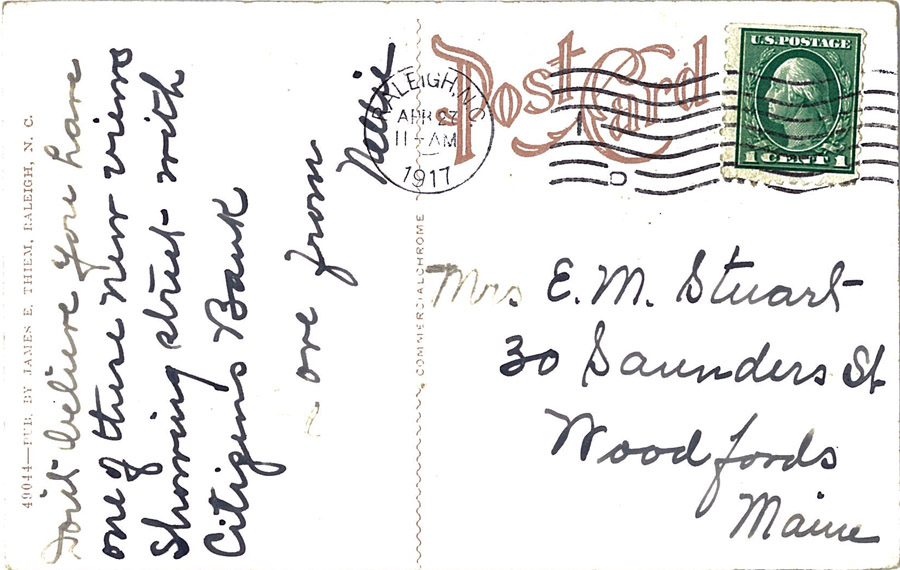 49044—PUB. BY JAMES E. THIEM, RALEIGH, N. C.
Don't believe you have
one of these new views
showing street with
Citizens Bank
Love from
Nellie
COMMERCIALCHROME
Post Card
RALEIGH, N.C.
APR 27
11 - AM
1917
U.S. POSTAGE
1 CENT 1
Mrs E. M. Stuart
30 Saunders St
Woodfords
Maine